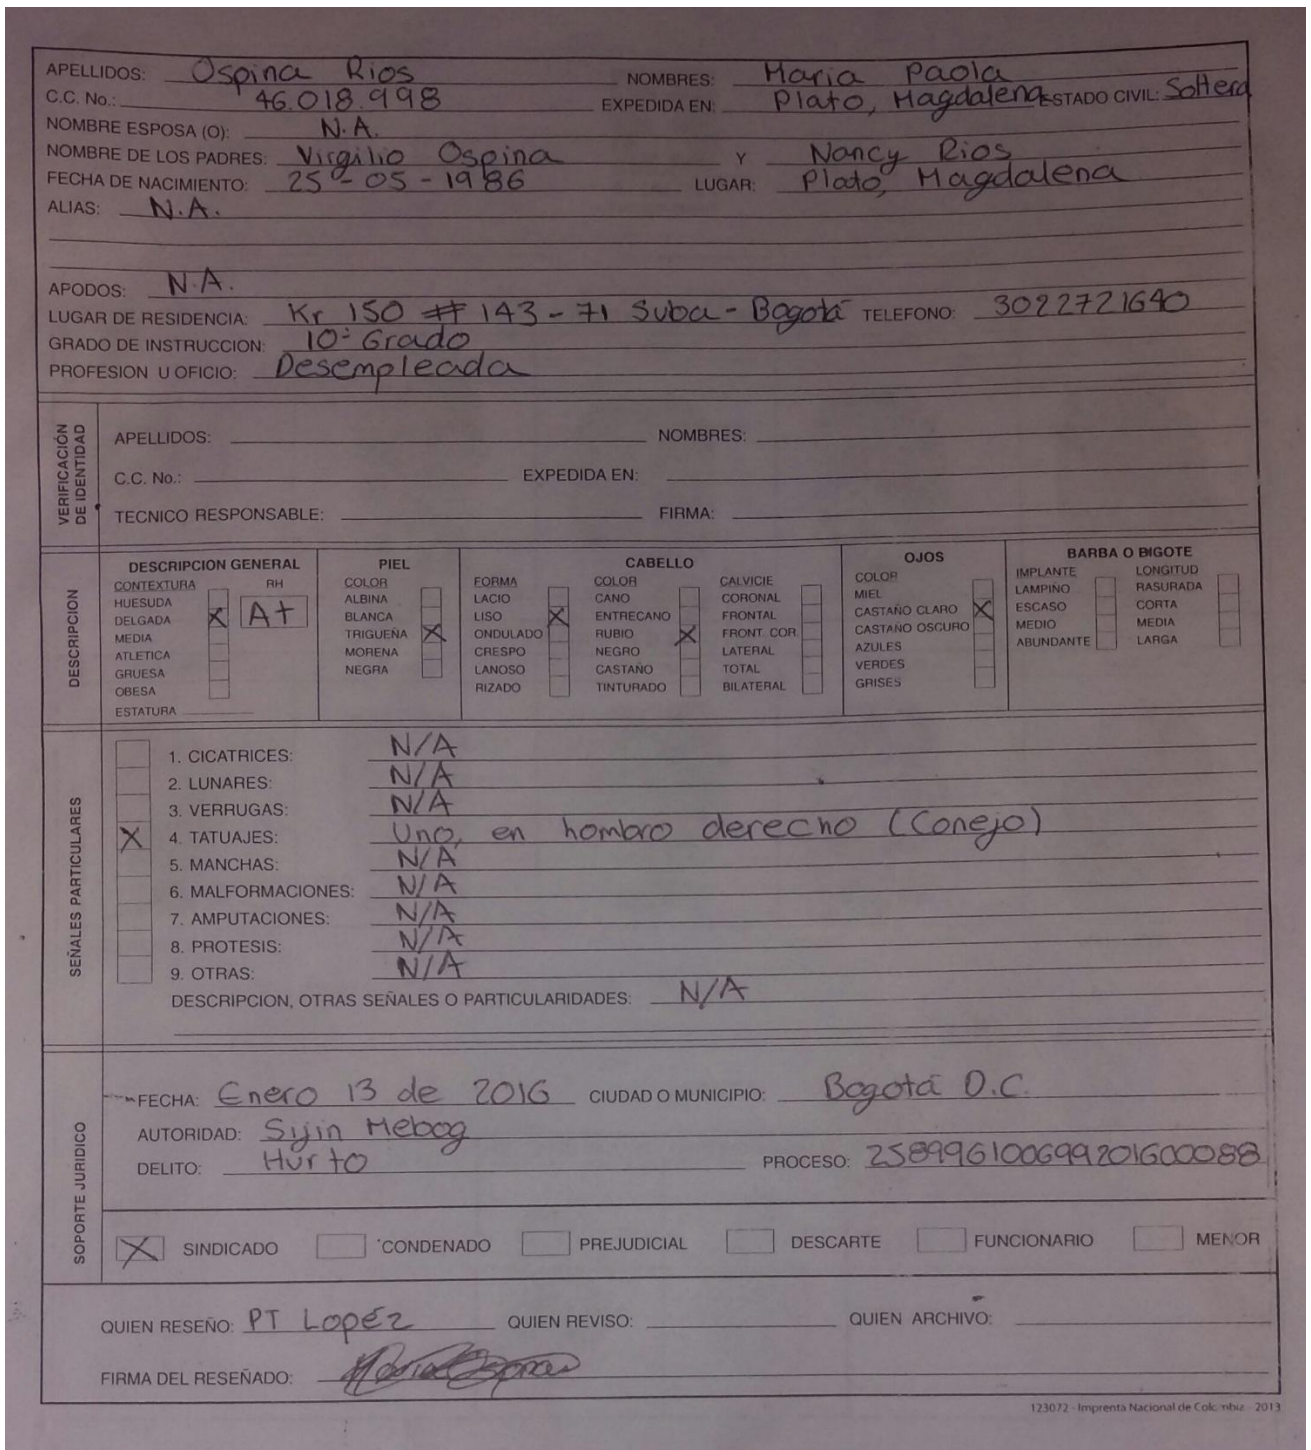 APELLIDOS: Ospina Rios NOMBRES: Maria Paola
C.C. No.: 46.018.998 EXPEDIDA EN: Plato, Magdalena ESTADO CIVIL: Soltera
NOMBRE ESPOSA (O): N.A.
NOMBRE DE LOS PADRES: Virgilio Ospina Y Nancy Rios
FECHA DE NACIMIENTO: 25-05-1986 LUGAR: Plato, Magdalena
ALIAS: N.A.
APODOS: N.A.
LUGAR DE RESIDENCIA: Kr 150 # 143-71 Suba-Bogotá TELEFONO: 3022721640
GRADO DE INSTRUCCION: 10º Grado
PROFESION U OFICIO: Desempleada
VERIFICACIÓN DE IDENTIDAD
APELLIDOS: NOMBRES:
C.C. No.: EXPEDIDA EN:
TECNICO RESPONSABLE: FIRMA:
DESCRIPCION
DESCRIPCION GENERAL
CONTEXTURA RH
HUESUDA
DELGADA X A+
MEDIA
ATLETICA
GRUESA
OBESA
ESTATURA
PIEL
COLOR
ALBINA
BLANCA
TRIGUEÑA X
MORENA
NEGRA
CABELLO
FORMA
LACIO
LISO X
ONDULADO
CRESPO
LANOSO
RIZADO
COLOR
CANO
ENTRECANO
RUBIO X
NEGRO
CASTAÑO
TINTURADO
CALVICIE
CORONAL
FRONTAL
FRONT. COR.
LATERAL
TOTAL
BILATERAL
OJOS
COLOR
MIEL
CASTAÑO CLARO X
CASTAÑO OSCURO
AZULES
VERDES
GRISES
BARBA O BIGOTE
IMPLANTE
LAMPIÑO
ESCASO
MEDIO
ABUNDANTE
LONGITUD
RASURADA
CORTA
MEDIA
LARGA
SEÑALES PARTICULARES
1. CICATRICES: N/A
2. LUNARES: N/A
3. VERRUGAS: N/A
X 4. TATUAJES: Uno, en hombro derecho (Conejo)
5. MANCHAS: N/A
6. MALFORMACIONES: N/A
7. AMPUTACIONES: N/A
8. PROTESIS: N/A
9. OTRAS: N/A
DESCRIPCION, OTRAS SEÑALES O PARTICULARIDADES: N/A
SOPORTE JURIDICO
FECHA: Enero 13 de 2016 CIUDAD O MUNICIPIO: Bogotá D.C.
AUTORIDAD: Sijin Mebog
DELITO: Hurto PROCESO: 258996100699201600088
X SINDICADO CONDENADO PREJUDICIAL DESCARTE FUNCIONARIO MENOR
QUIEN RESEÑO: PT Lopéz QUIEN REVISO: QUIEN ARCHIVO:
FIRMA DEL RESEÑADO:
123072 - Imprenta Nacional de Colombia - 2013